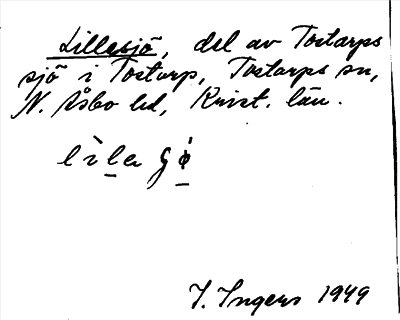 Lillesjö, del av Tostarps
sjö i Tostarp, Tostarps sn,
N. Åsbo hd, Krist. län.
lìla
I. Ingers 1949